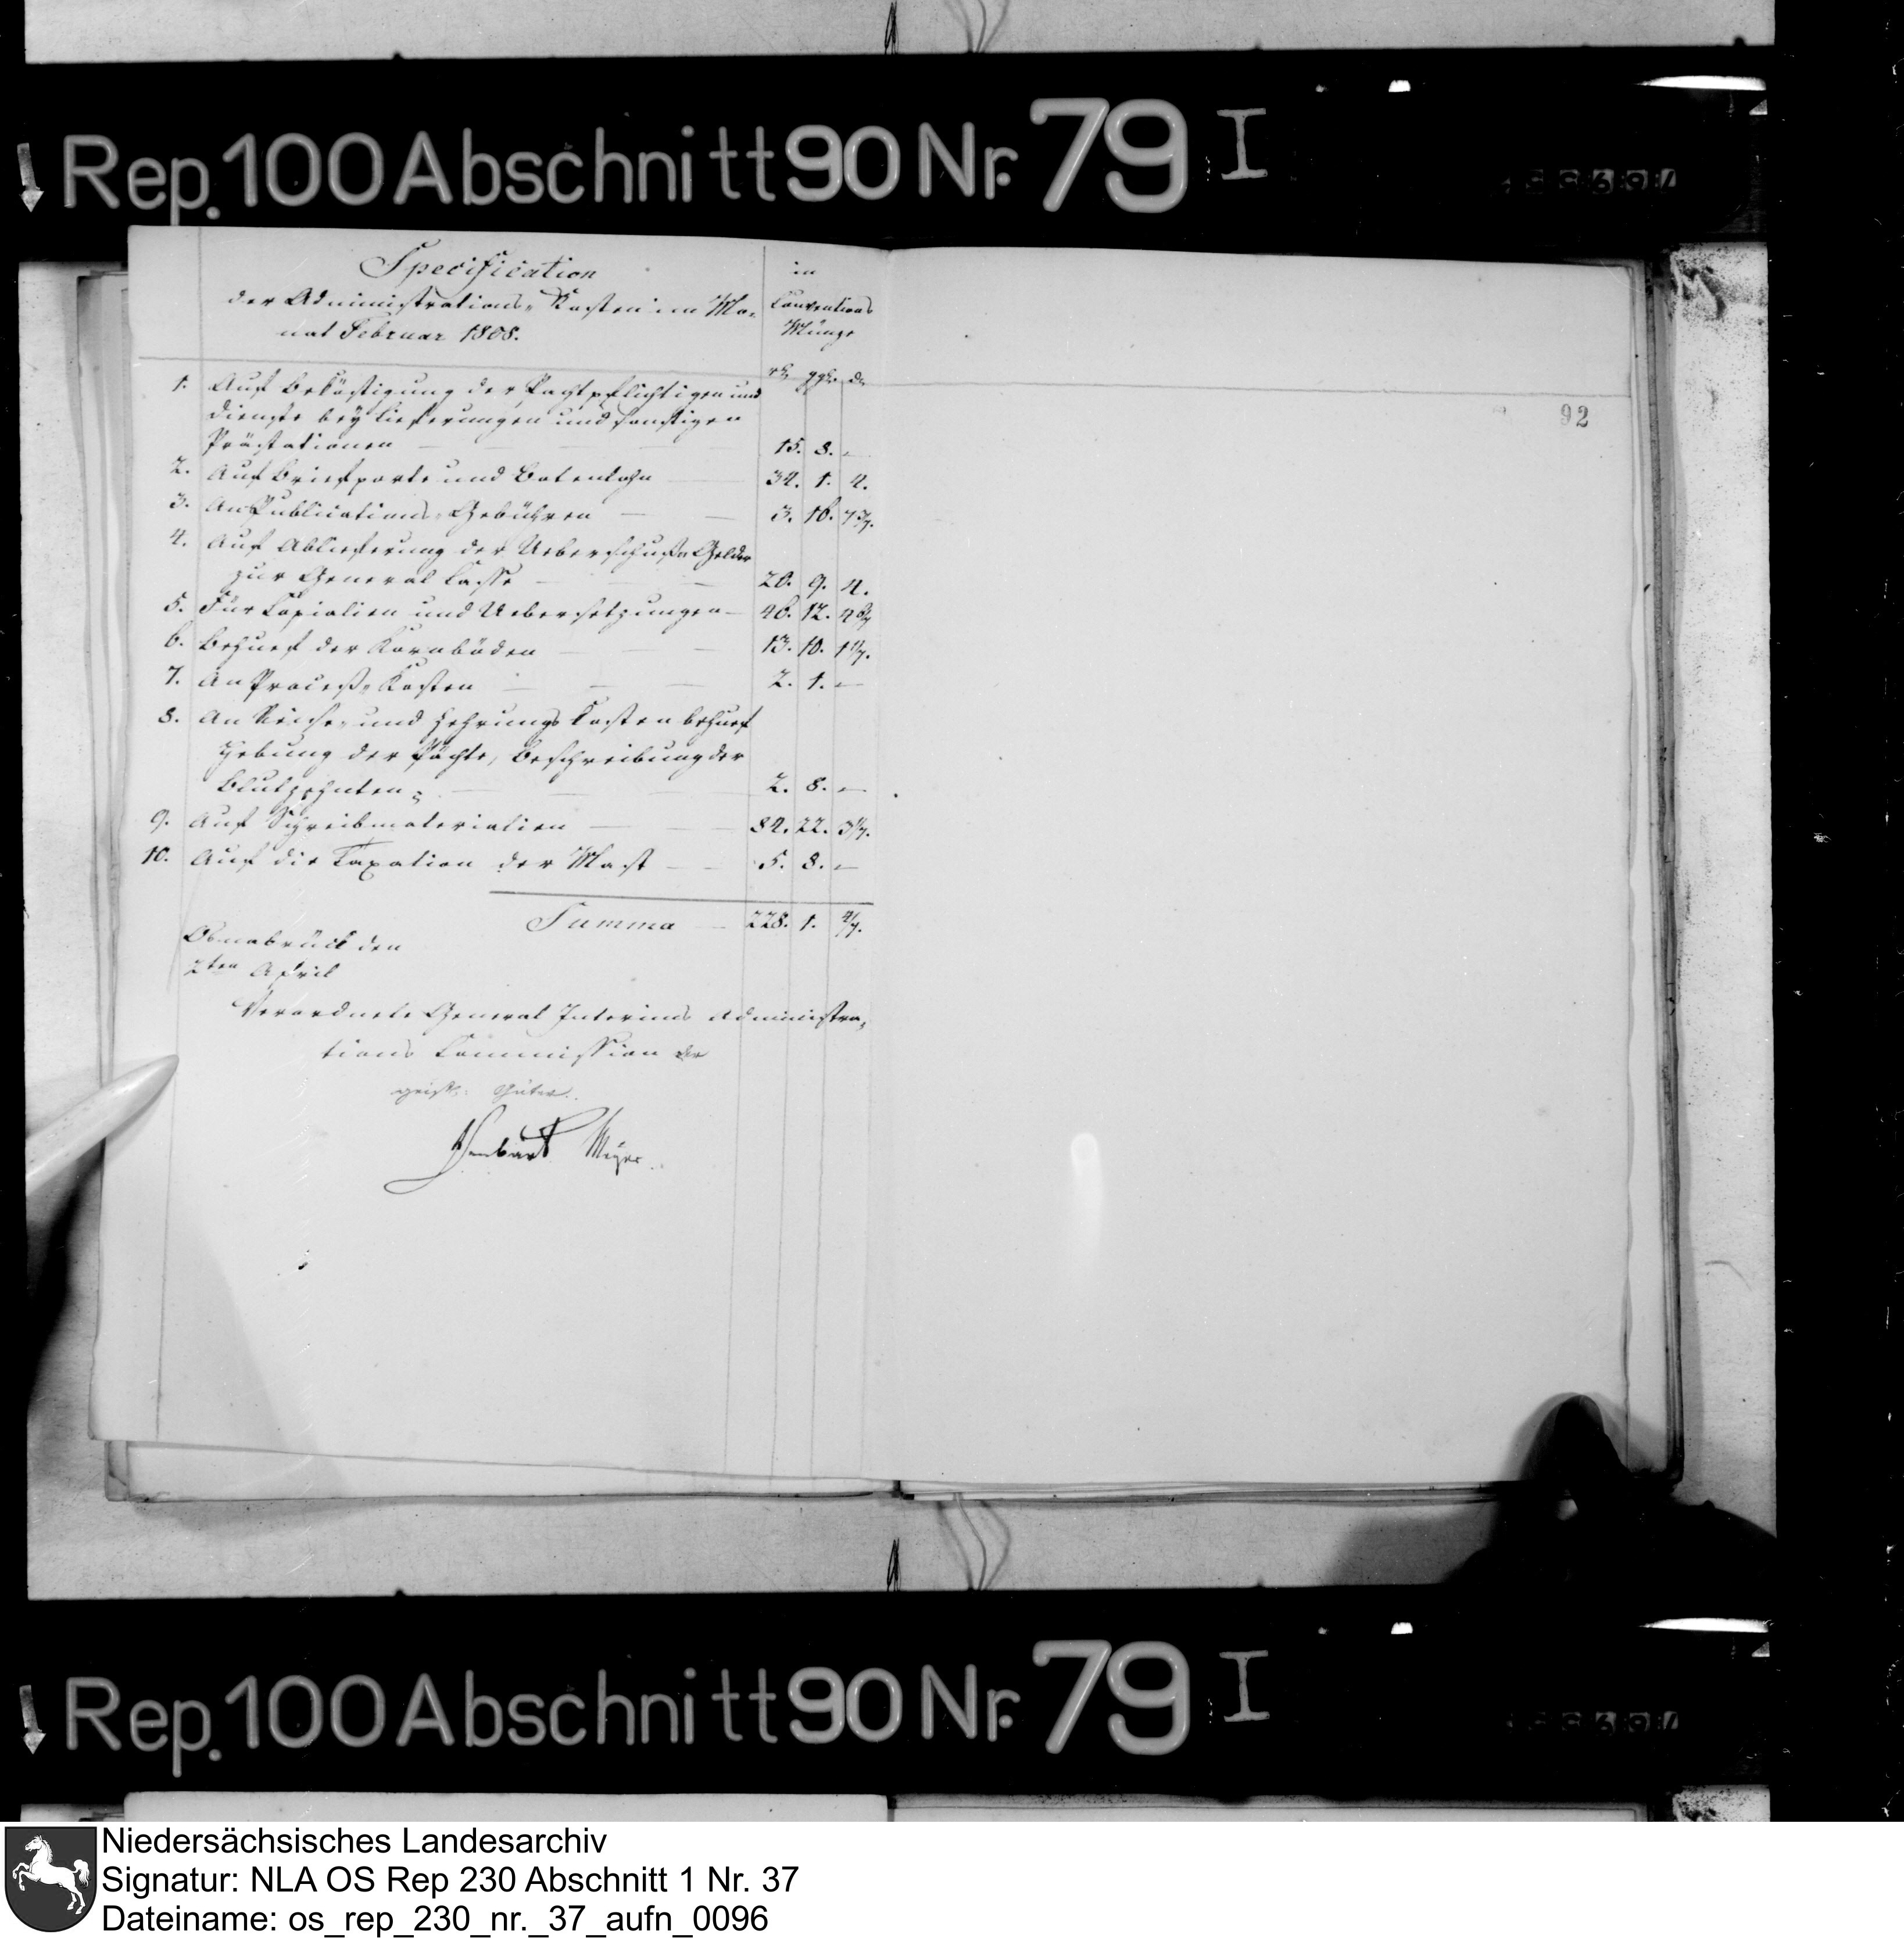 Rep. 100 Abschnitt 90 Nr. 79 I
Specification
der Administrations-Kosten im Mo-
nat Februar 1808.
in
Conventions
Münze
rt ggr. d.
92
1. Auf Beköstigung der Pachtpflichtigen und
Dienste bey Lieferungen und sonstigen
Prästationen — 15. 8. —
2. Auf Briefporto und Botenlohn — 34. 1. 4.
3. An Publications-Gebühren — 3. 16. 7 3/7.
4. Auf Ablieferung der Ueberschuß-Gelder
zur General Casse — 20. 9. 4.
5. Für Copialien und Uebersetzungen — 46. 12. 4 6/7
6. Behuef der Kornböden — 13. 10. 1 1/7.
7. An Proceß-Kosten — 2. 1. —
8. An Reise- und Zehrungs Kosten behuef
Hebung der Pächte, Beschreibung der
Blutzehnten — 2. 8. —
9. Auf Schreibmaterialien — 84. 22. 3 1/7.
10. Auf die Taxation der Mast — 5. 8. —
Summa — 228. 1. 4/7.
Osnabrück den
2ten April
Verordnete General Interims Administra-
tions Commission der
geistl: Güter.
Meyer
Rep. 100 Abschnitt 90 Nr. 79 I
Niedersächsisches Landesarchiv
Signatur: NLA OS Rep 230 Abschnitt 1 Nr. 37
Dateiname: os_rep_230_nr._37_aufn_0096